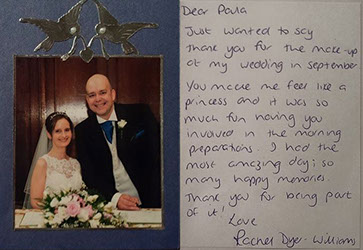 Dear Paula
Just wanted to say
thank you for the make up
at my wedding in september
You made me feel like a
princess and it was so
much fun having you
involved in the morning
preparations. I had the
most amazing day; so
many happy memories.
Thank you for being part
of it!
Love
Rachel Dyer-Williams